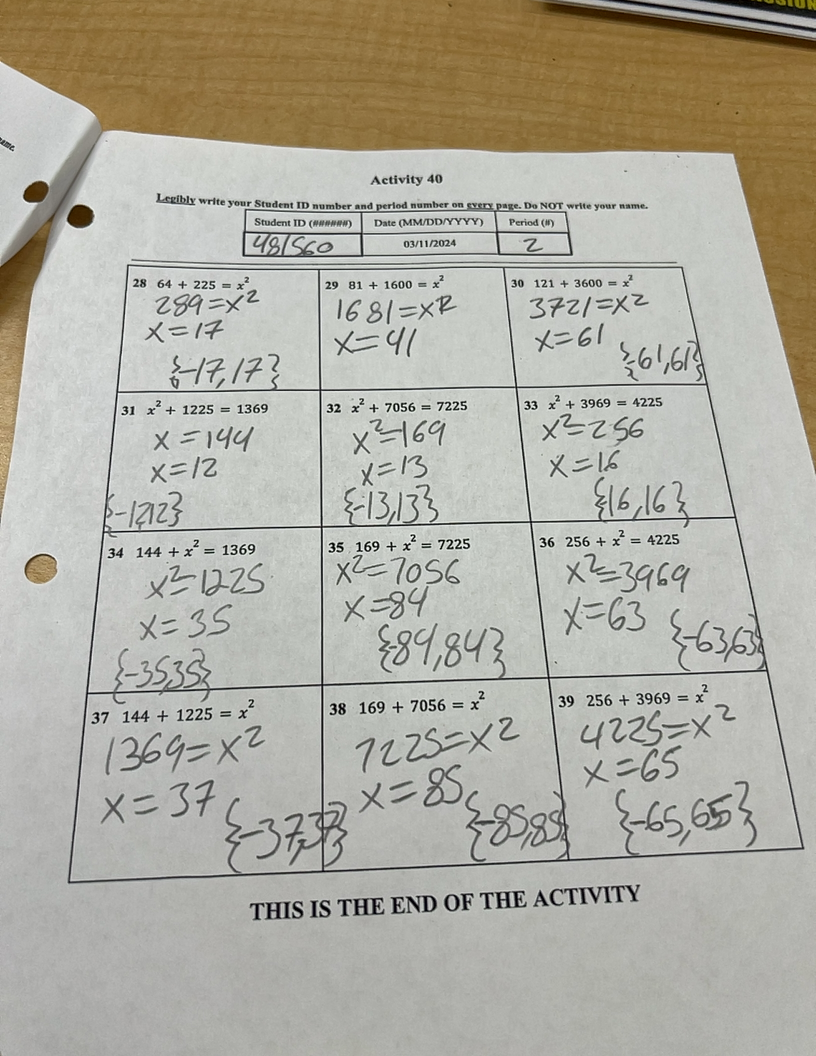 Activity 40
Legibly write your Student ID number and period number on every page. Do NOT write your name.
Student ID (######) Date (MM/DD/YYYY) Period (#)
481560 03/11/2024 2
28 64 + 225 = x²
289=x²
x=17
{-17,17}
29 81 + 1600 = x²
1681=x²
x=41
30 121 + 3600 = x²
3721=x²
x=61
{-61,61}
31 x² + 1225 = 1369
x=144
x=12
{-12,12}
32 x² + 7056 = 7225
x²=169
x=13
{-13,13}
33 x² + 3969 = 4225
x²=256
x=16
{16,16}
34 144 + x² = 1369
x²=1225
x=35
{-35,35}
35 169 + x² = 7225
x²=7056
x=84
{-84,84}
36 256 + x² = 4225
x²=3969
x=63
{-63,63}
37 144 + 1225 = x²
1369=x²
x=37
{-37,37}
38 169 + 7056 = x²
7225=x²
x=85
{-85,85}
39 256 + 3969 = x²
4225=x²
x=65
{-65,65}
THIS IS THE END OF THE ACTIVITY